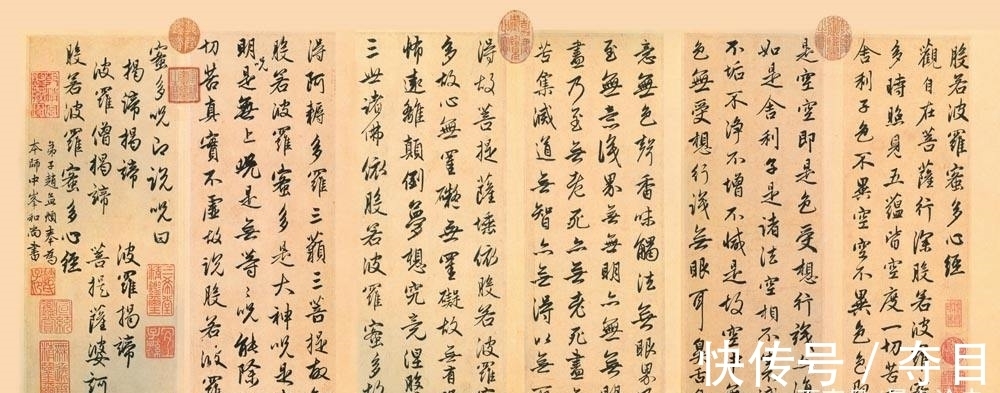 般若波羅蜜多心經
觀自在菩薩行深般若波羅
多時照見五蘊皆空度一切苦
舍利子色不異空空不異色色即
是空空即是色受想行識亦
如是舍利子是諸法空相不生
不垢不淨不增不減是故空
色無受想行識無眼耳鼻舌
意無色聲香味觸法無眼界
至無意識界無無明亦無無
盡乃至無老死亦無老死盡
苦集滅道無智亦無得以無
得故菩提薩埵依般若波羅
多故心無罣礙無罣礙故無有
怖遠離顛倒夢想究竟涅槃
三世諸佛依般若波羅蜜多故
得阿耨多羅三藐三菩提故
般若波羅蜜多是大神咒是
明咒是無上咒是無等々咒能除
切苦真實不虛故說般若波羅
蜜多咒即說咒曰
揭諦揭諦 波羅揭諦
波羅僧揭諦 菩提薩婆訶
般若波羅蜜多心經
弟子趙孟頫奉為
本師中峯和尚書
快传号 / 夺目